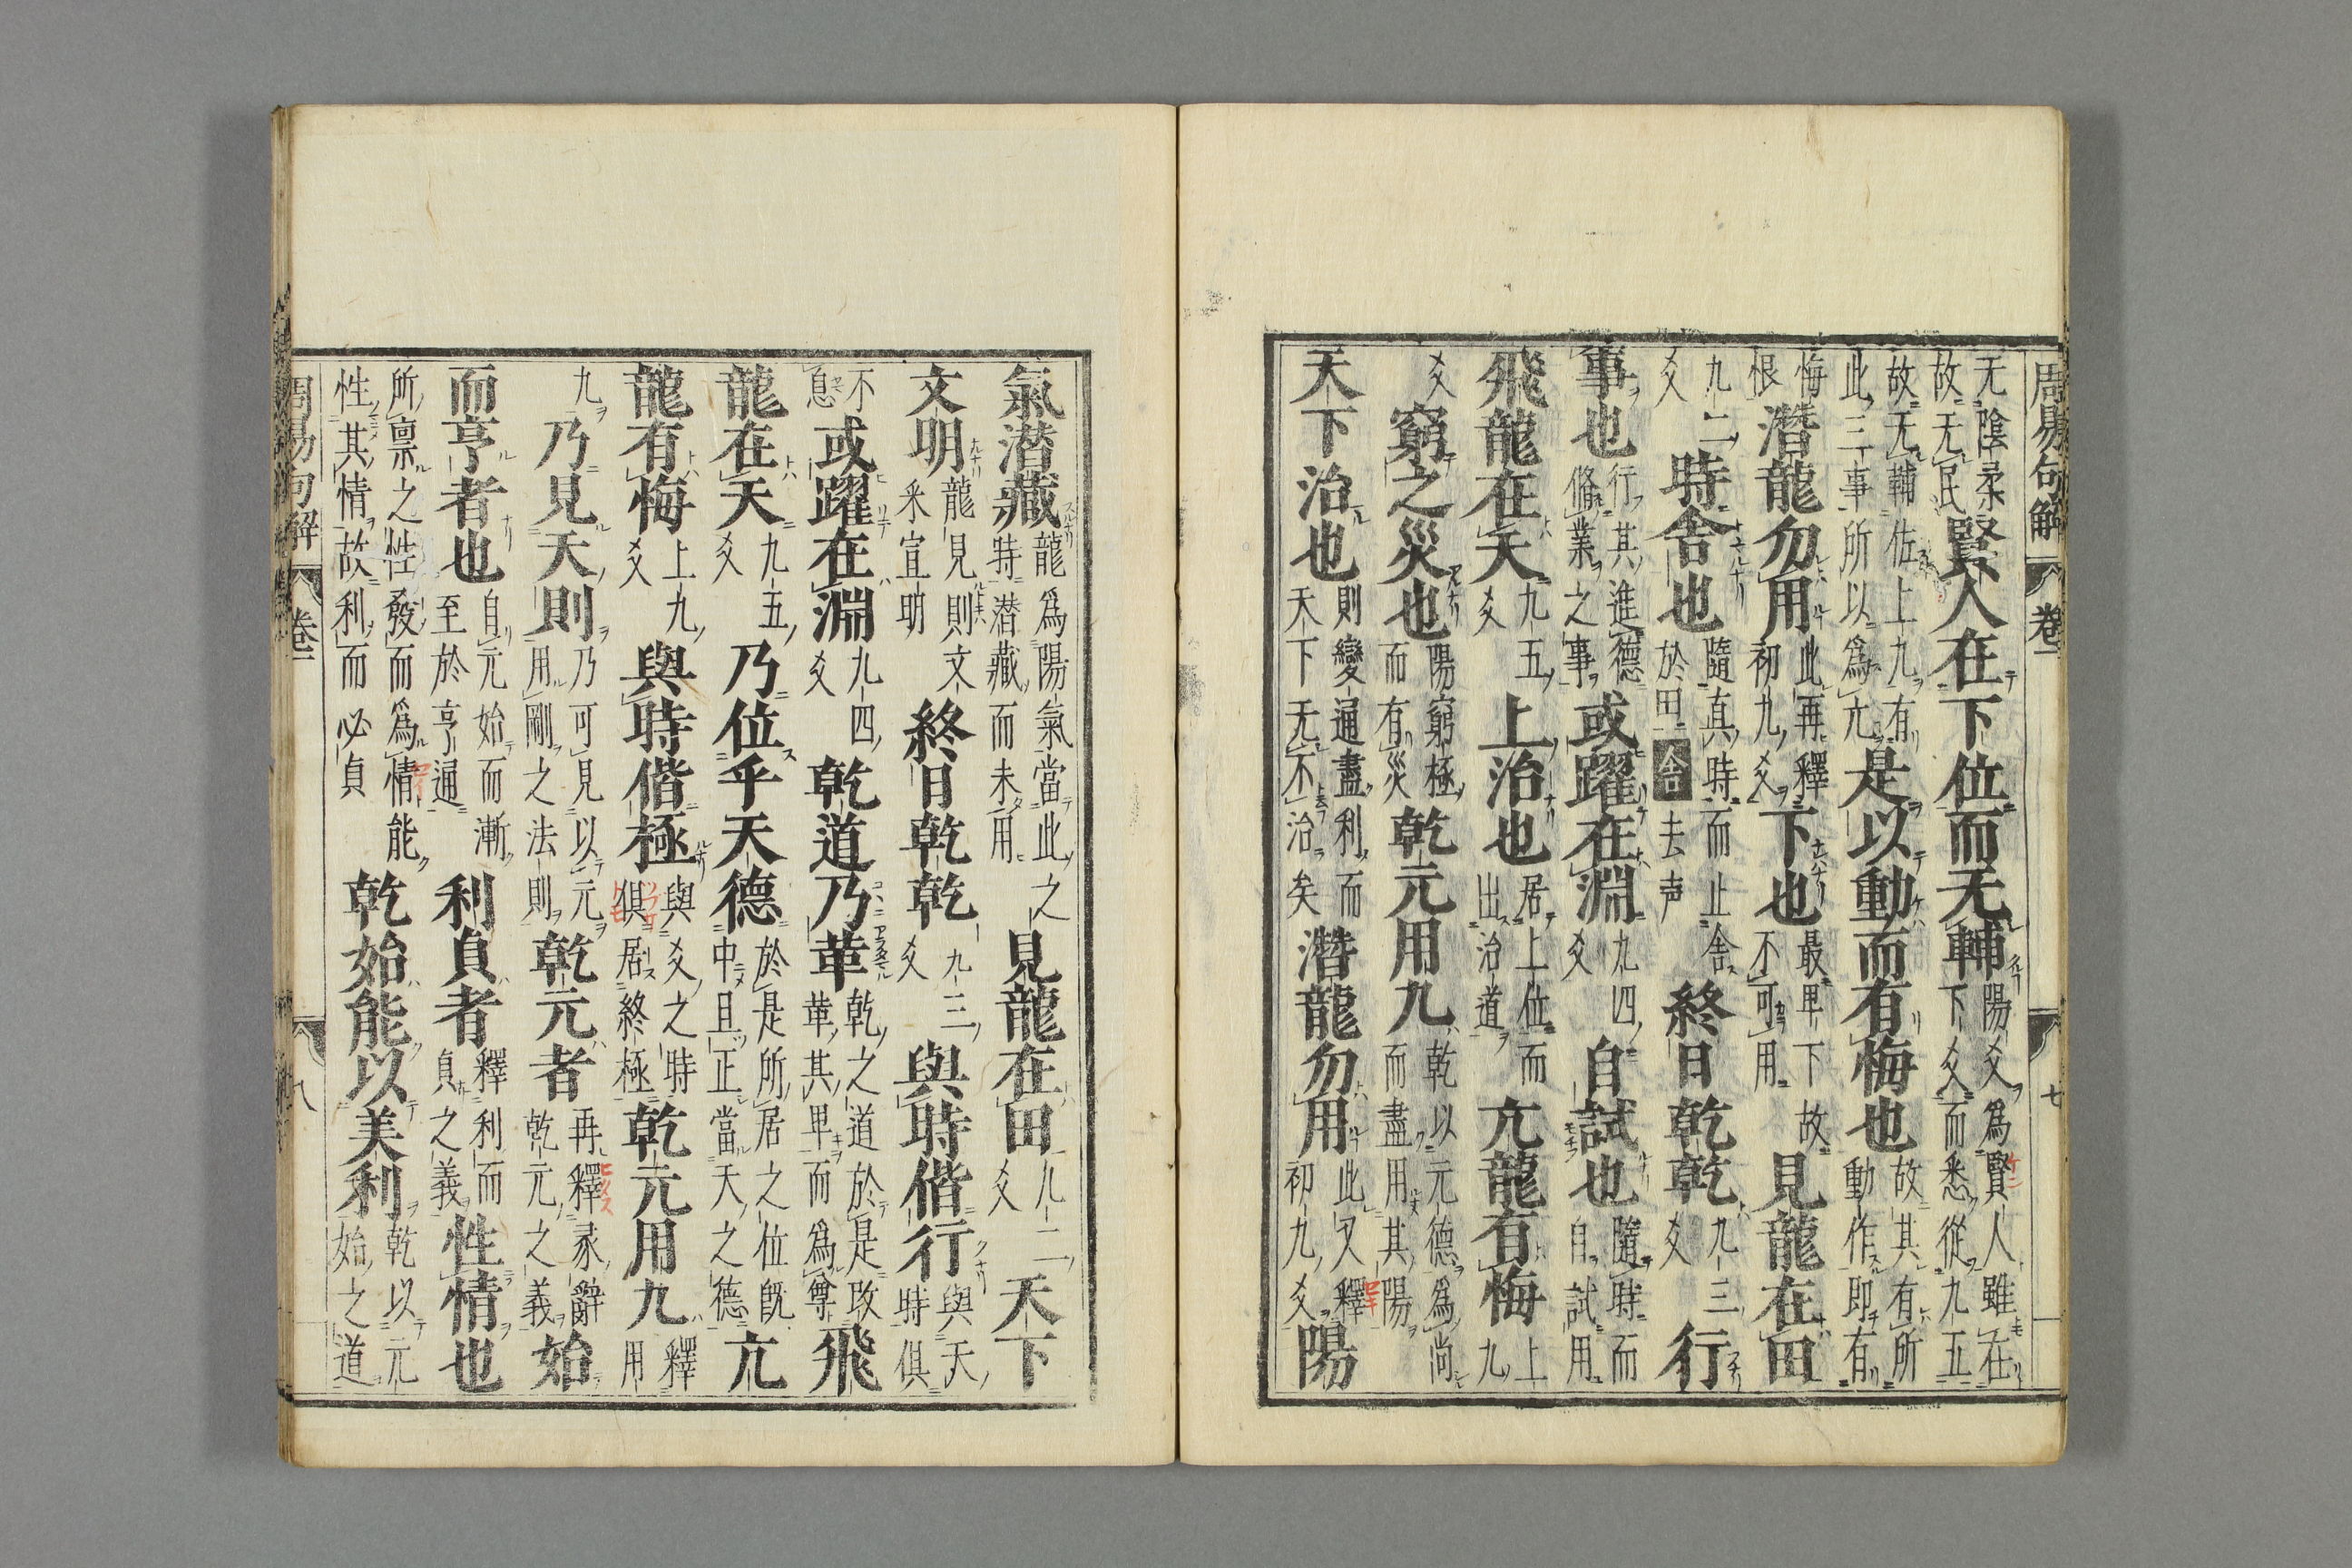 周易句解 卷一 七
无陰柔故无民賢人在下位而无輔陽爻爲賢人雖在下爻而悉從九五
故无輔佐上九有此三事所以爲亢是以動而有悔也故其有所動作即有
悔恨潛龍勿用此再釋初九爻下也最卑下故不可用見龍在田
九二爻時舍也隨其時而止舍於田舍去声終日乾乾九三爻行
事也行其進德脩業之事或躍在淵九四爻自試也隨時而自試用
飛龍在天九五爻上治也居上位而出治道亢龍有悔上九
爻窮之災也陽窮極而有災乾元用九乾以元德爲尚而盡用其陽
天下治也則變通盡利而天下无不治矣潛龍勿用此又釋初九爻陽
氣潛藏龍爲陽氣當此之時潛藏而未用見龍在田九二爻天下
文明龍見則文釆宣明終日乾乾九三爻與時偕行與天時俱
不息或躍在淵九四爻乾道乃革乾之道於是改革其卑而爲尊飛
龍在天九五爻乃位乎天德於是所居之位既中且正當天之德亢
龍有悔上九爻與時偕極與爻之時俱居終極乾元用九釋用
九乃見天則乃可見以元用剛之法則乾元者再釋彖辭乾元之義始
而亨者也自元始而漸至於亨通利貞者釋利而貞之義性情也
所稟之性發而爲情能性其情故利而必貞乾始能以美利乾以元始之道
周易句解 卷一 八